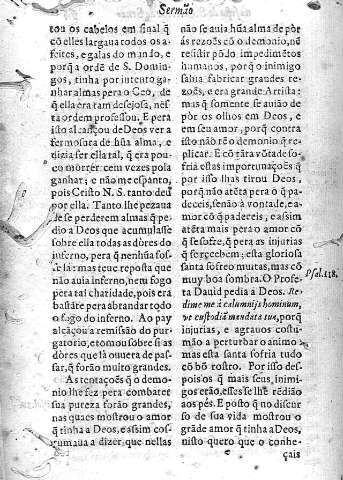 Sermão
tou os cabelos em sinal q̃
cõ elles largaua todos os a-
feites, e galas do mundo, e
porq̃ a ordẽ de S. Domin-
gos, tinha por intento ga-
nhar almas pera o Ceo, de
q̃ ella era tam desejosa, nes-
ta ordem professou. E pera
isto alcançou de Deos ver a
fermosura de hũa alma, e
dizia ser ella tal, q̃ era pou-
co morrer cem vezes pola
ganhar; e não me espanto,
pois Cristo N. S. tanto deu
por ella. Tanto lhe pezaua
de se perderem almas q̃ pe-
dio a Deos que acumulasse
sobre ella todas as dores do
inferno, pera q̃ nenhũa fos-
se là: mas teue reposta que
não auia inferno, nem fogo
pera tal charidade, pois era
bastãte pera abrandar todo
o fogo do inferno. Ao pay
alcãçou a remissão do pur-
gatorio, e tomou sobre si as
dores que là ouuera de pas-
sar, q̃ forão muito grandes.
As tentações q̃ o demo-
nio lhe fez pera combater
sua pureza forão grandes,
nas quaes mostrou o amor
q̃ tinha a Deos, e assim cos-
tumaua a dizer, que nellas
não se auia hũa alma de pòr
às rezoẽs cõ o demonio, nẽ
resistir põdo impedimẽtos
humanos, porq̃ o inimigo
sabia fabricar grandes re-
zoẽs, e era grande Artista:
mas q̃ somente se auião de
pòr os olhos em Deos, e
em seu amor, porq̃ contra
isto não rẽ o demonio q̃ re-
plicar. E cõ tãta võtade so-
fria estas importunaçoẽs q̃
por isso lhas tirou Deos,
porq̃ não atẽta pera o q̃ pa-
deceis, senão à vontade, e a-
mor cõ q̃ padeceis; e assim
atẽta mais pera o amor cõ
q̃ se sofre, q̃ pera as injurias
q̃ se recebem; esta gloriosa
santa sofreo muitas, mas cõ
muy boa sombra. O Profe-
ta Dauid pedia a Deos. Re-
dime me à calumnijs hominum,
vt custodiã mandata tua, porq̃
injurias, e agrauos costu-
mão a perturbar o animo;
mas esta santa sofria tudo
cõ bõ rostro. Por isso des-
pois os q̃ mais seus, inimi-
gos erão, esses se lhe rẽdião
aos pès. E posto q̃ no discur-
so de sua vida mostrou o
grãde amor q̃ tinha a Deos,
nisto quero que o conhe-
çais
Psal. 118.